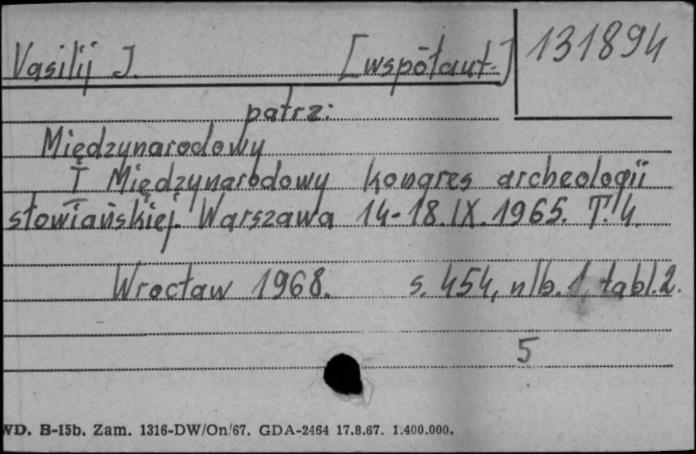 Vasilij J. [współaut.] 131894
patrz:
Międzynarodowy
I Międzynarodowy kongres archeologii
słowiańskiej. Warszawa 14-18.IX.1965. T. 4.
Wrocław 1968. s. 454, nlb. 1, tabl. 2.
5
WD. B-15b. Zam. 1316-DW/On/67. GDA-2464 17.8.67. 1.400.000.